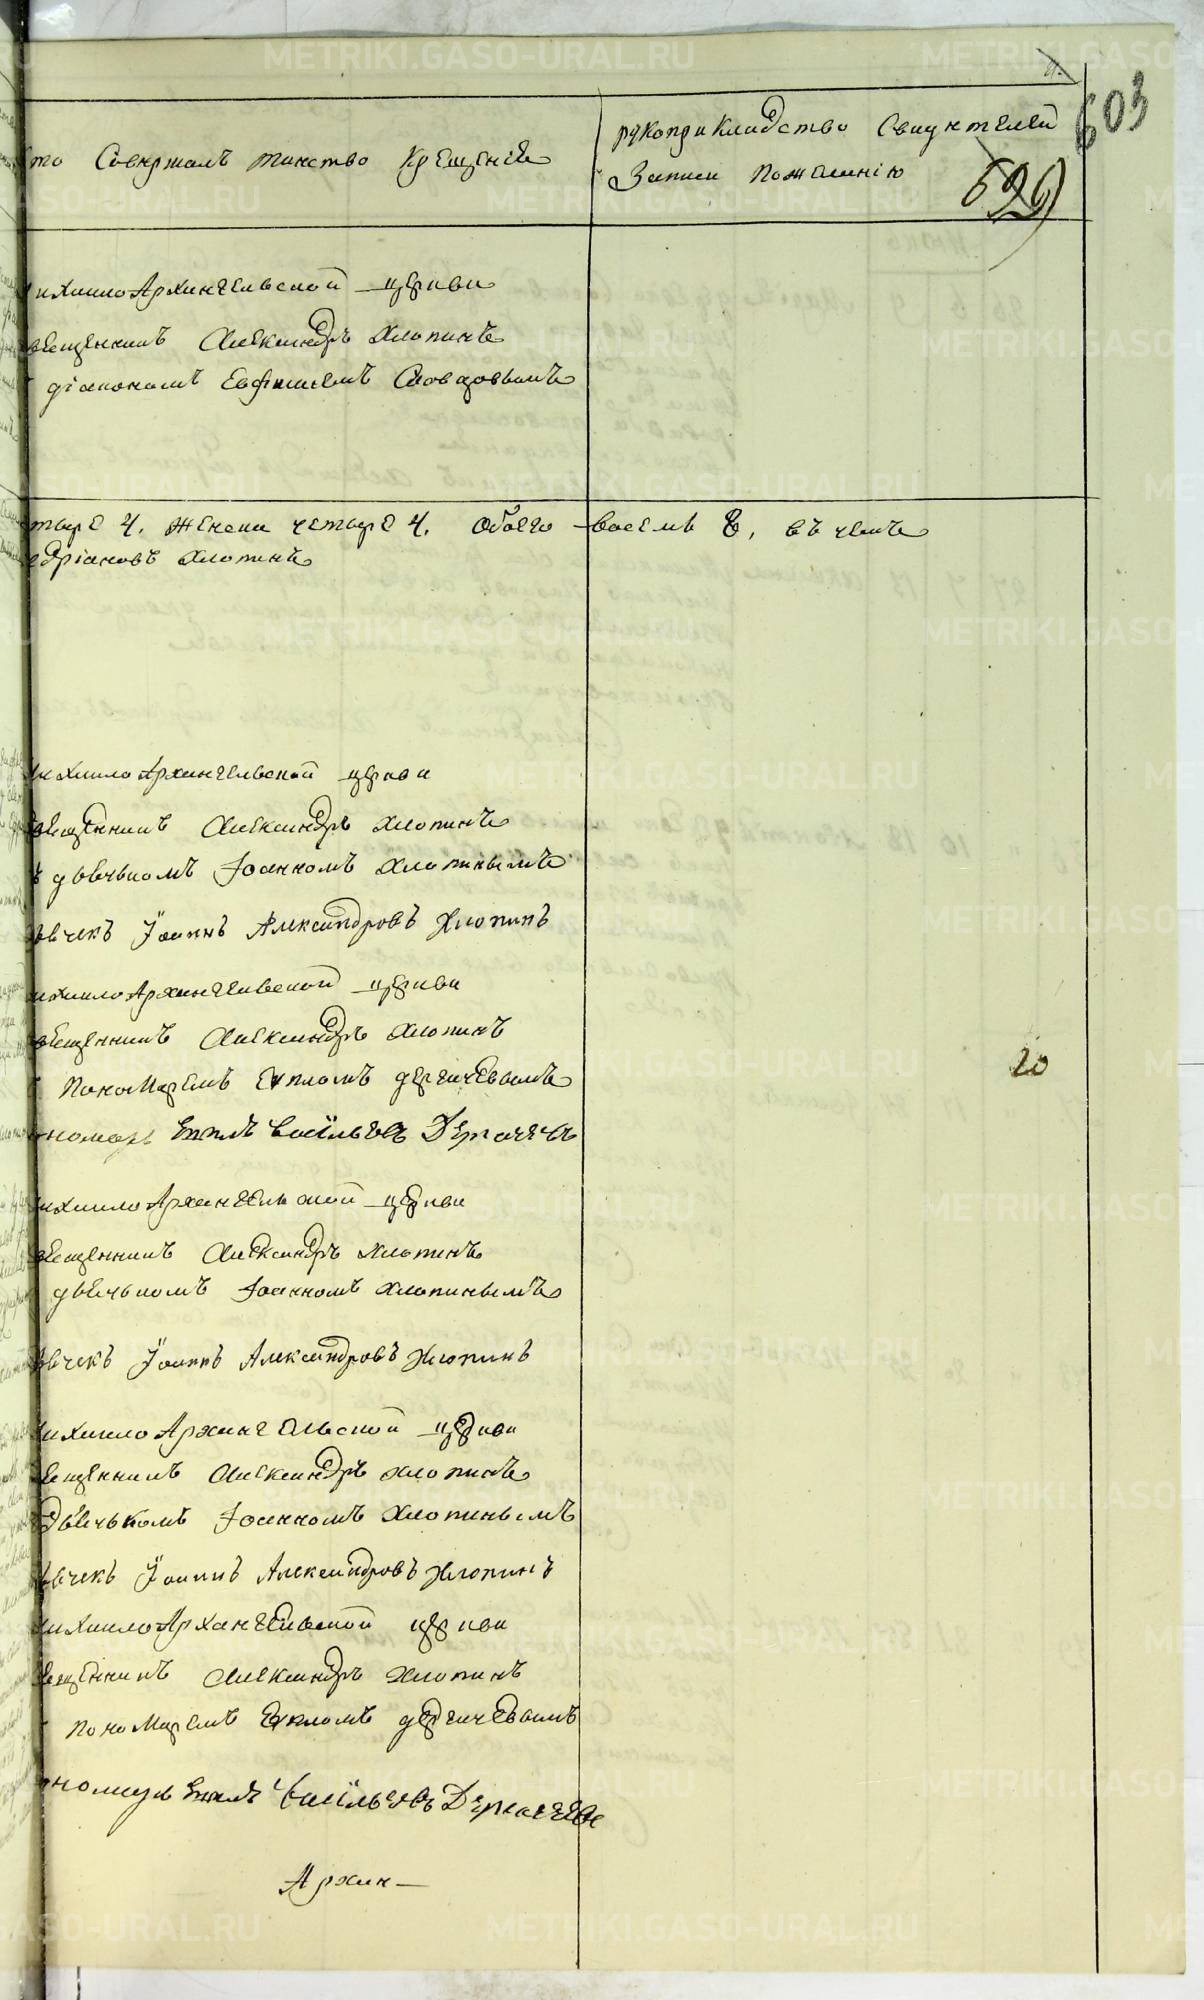 603
рукоприкладство Свидѣтелей
то Совершалъ таинство крещенія
Записи по желанію
629
Михаило Архангельской церкви
священникъ Александръ Хлопинъ
діакономъ Евфимiемъ Словцовымъ
тыре 4. женска четыре 4. обоего восемь 8, въ чемъ
Хлопинъ
ихаило Архангельской церкви
священникъ Александръ Хлопинъ
дьячькомъ Іоанномъ Хлопинымъ
ячекъ Іоаннъ Александровъ Хлопинъ
ихаило Архангельской церкви
священникъ Александръ Хлопинъ
20
пономаремъ Евпломъ Дергачевымъ
номарь Евплъ Васильевъ Дергачевъ
ихаило Архангельской церкви
священникъ Александръ Хлопинъ
дьячькомъ Іоанномъ Хлопинымъ
ячекъ Іоаннъ Александровъ Хлопинъ
ихаило Архангельской церкви
священникъ Александръ Хлопинъ
дьячькомъ Іоанномъ Хлопинымъ
ячекъ Іоаннъ Александровъ Хлопинъ
ихаило Архангельской церкви
священникъ Александръ Хлопинъ
пономаремъ Евпломъ Дергачевымъ
номарь Евплъ Васильевъ Дергачевъ
Архан—
METRIKI.GASO-URAL.RU